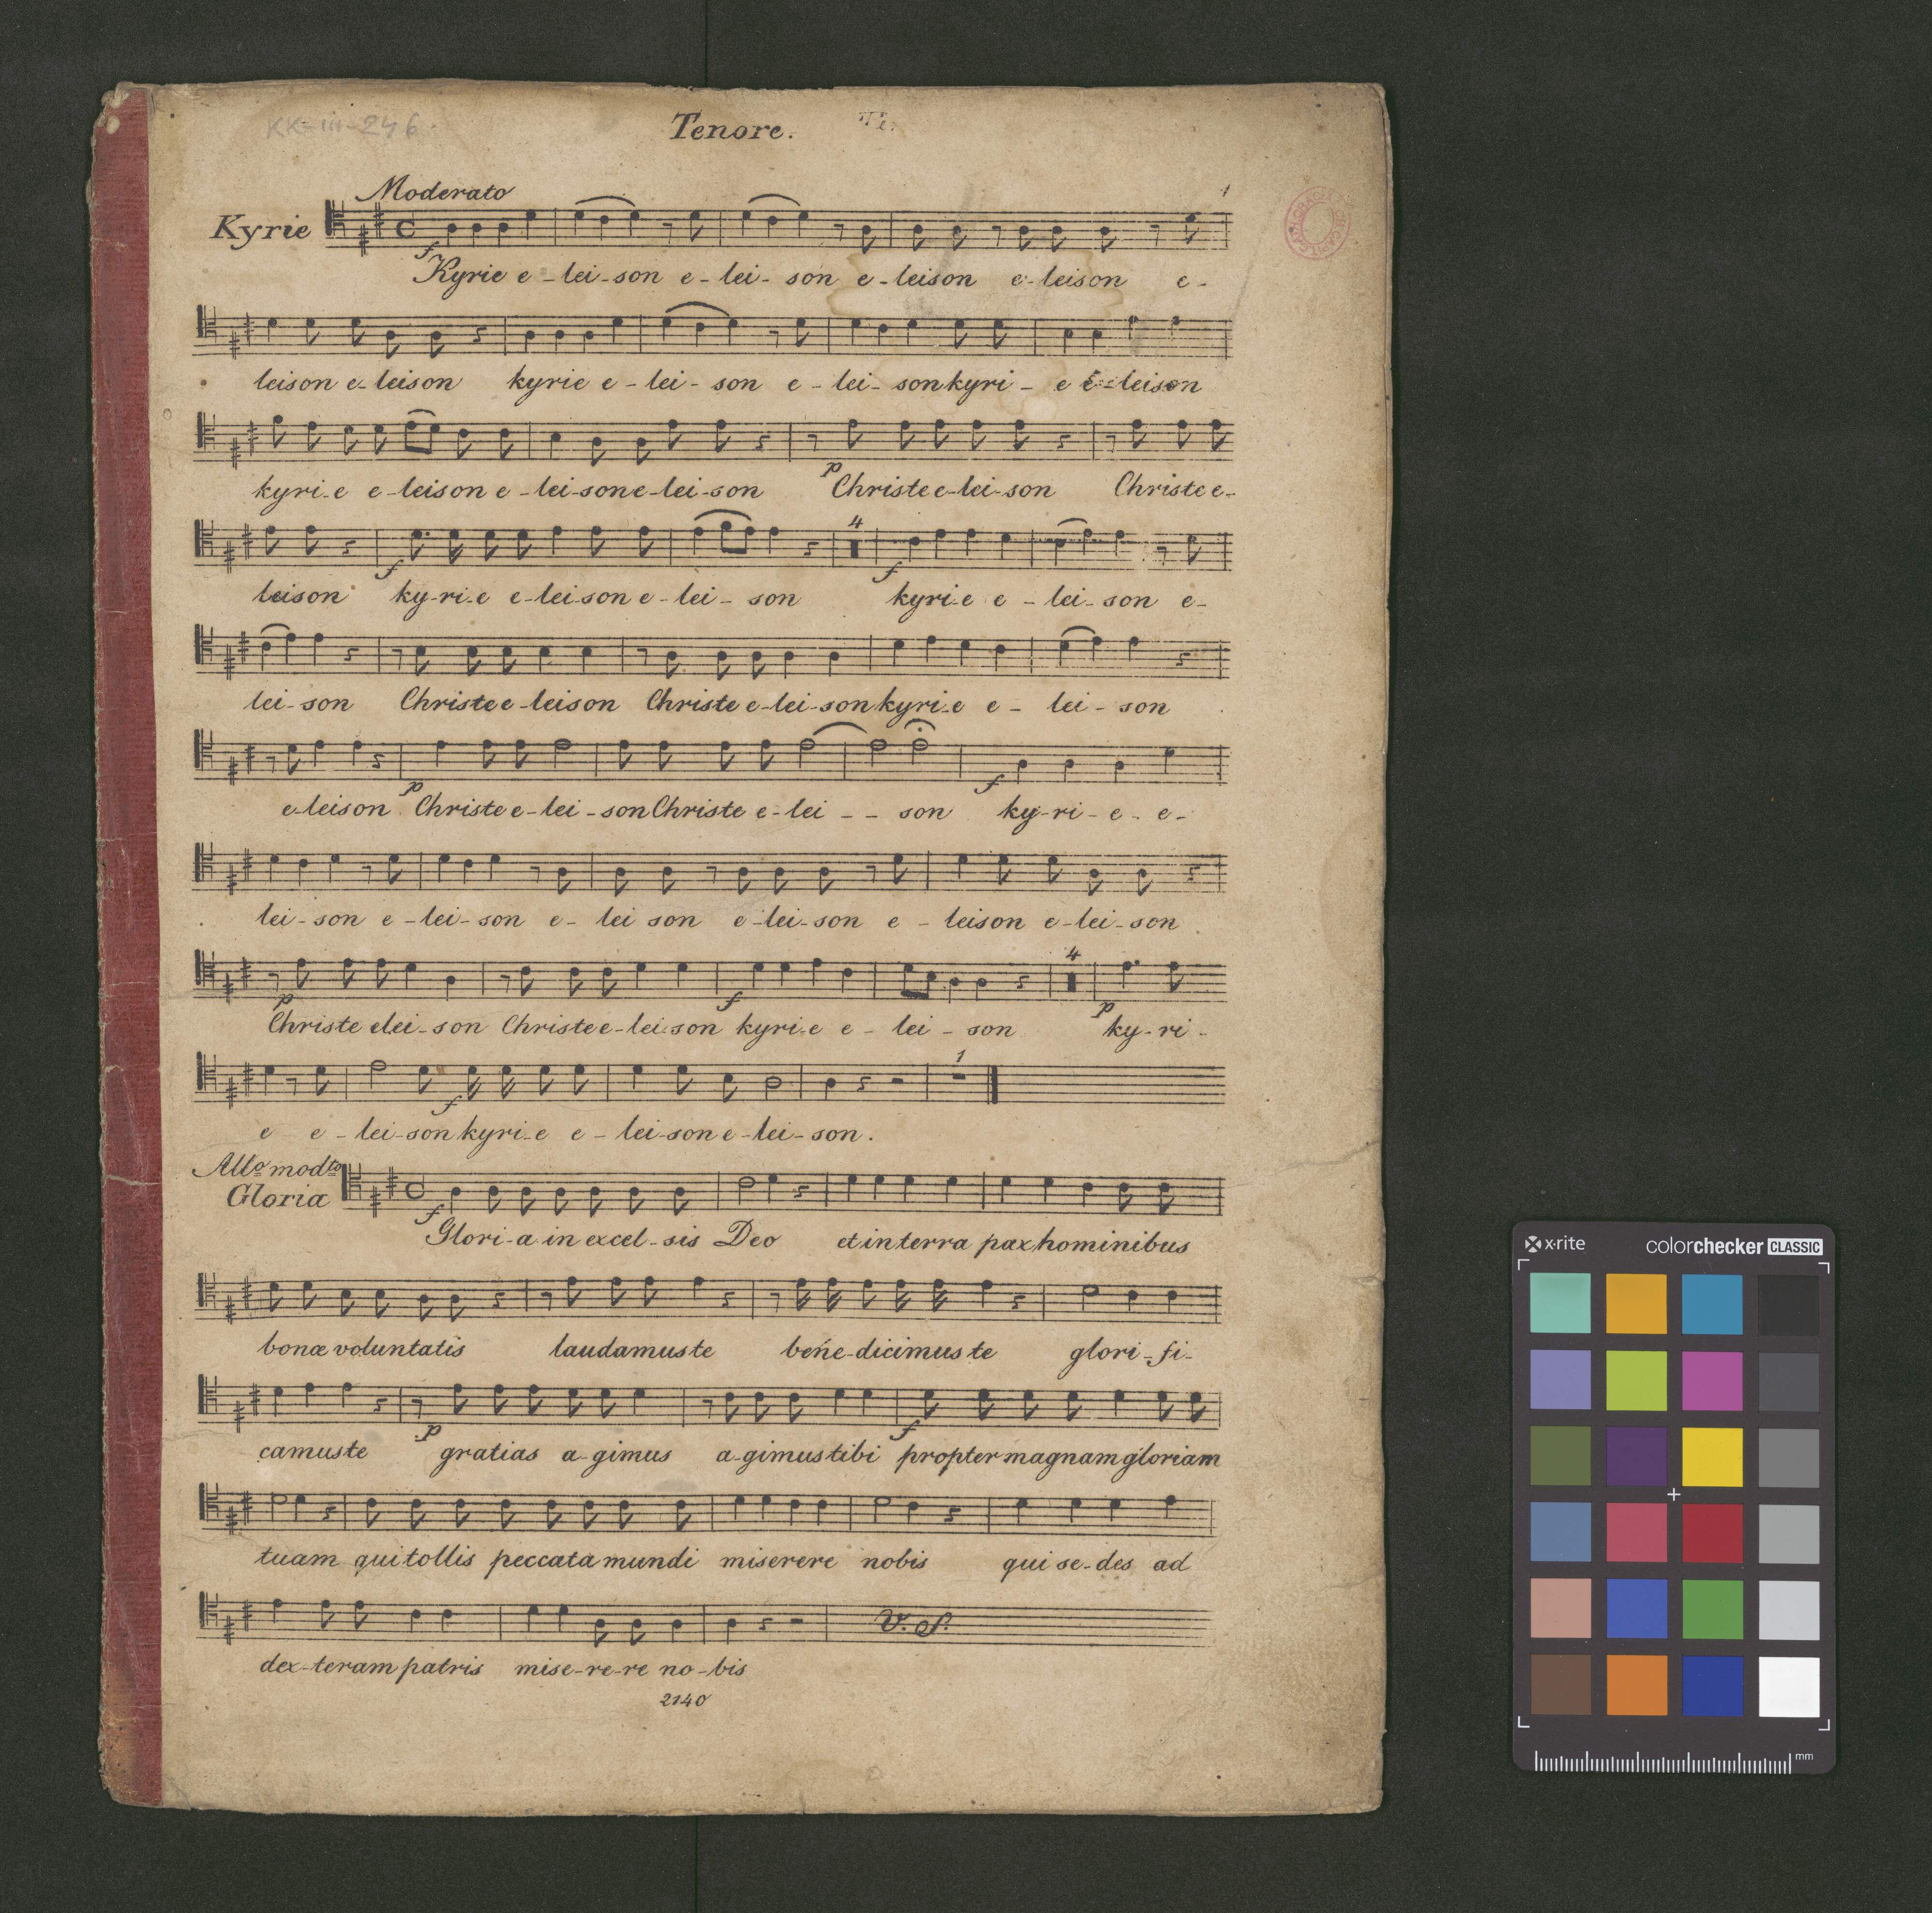 KK-III-246.
Tenore.
Moderato
1
Kyrie
f
Kyrie e-lei-son e-lei-son e-leison e-leison e-
leison e-leison kyrie e-lei-son e-lei-son kyri-e e-leison
kyri-e e-leison e-lei-son e-lei-son p Christe e-lei-son Christe e-
4
leison f ky-ri-e e-lei-son e-lei-son f kyri-e e-lei-son e-
lei-son Christe e-leison Christe e-lei-son kyri-e e-lei-son
e-leison p Christe e-lei-son Christe e-lei--son f ky-ri-e-e-
lei-son e-lei-son e-lei son e-lei-son e-leison e-lei-son
4
p Christe elei-son Christe e-lei-son f kyri-e e-lei-son p ky-ri-
1
e e-lei-son f kyri-e e-lei-son e-lei-son.
Allo modto
Gloria
f
Glori-a in excel-sis Deo et in terra pax hominibus
bonæ voluntatis laudamus te bene-dicimus te glori-fi-
camus te p gratias a-gimus a-gimus tibi f propter magnam gloriam
tuam qui tollis peccata mundi miserere nobis qui se-des ad
V. S.
dex-teram patris mise-re-re no-bis
2140
x·rite colorchecker CLASSIC
mm